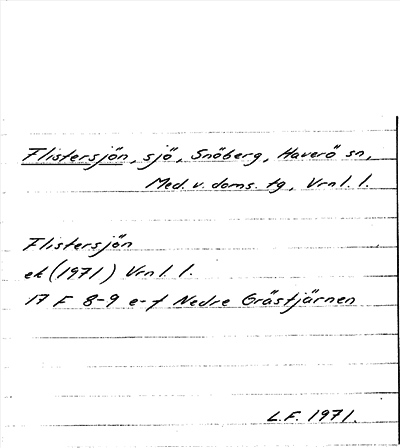 Flistersjön, sjö, Snöberg, Haverö sn,
Med. v. doms. tg, Vrnl. l.
Flistersjön
ek (1971) Vrnl. l.
17 F 8-9 e-f Nedre Gråstjärnen
L.F. 1971.